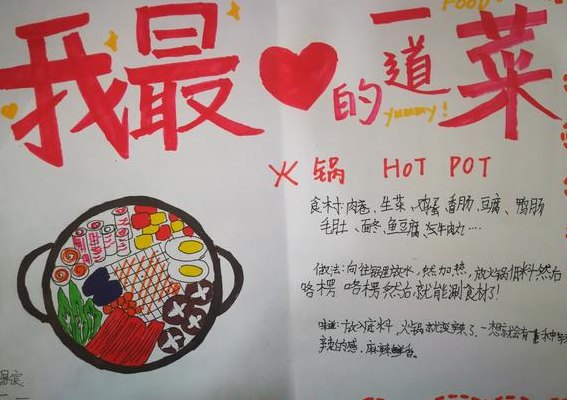 Food
我最❤的一道菜
yummy!
火锅 HOT POT
食材:肉卷、生菜、鸡蛋、香肠、豆腐、鸭肠
毛肚、面、鱼豆腐、牛肉丸…
做法:向往锅里放水,然加热,放火锅底料然后
咯楞 咯楞然后就能涮食材了!
味道:放入底料,火锅就变辣了,一想就会有
辣的感,麻辣鲜香。